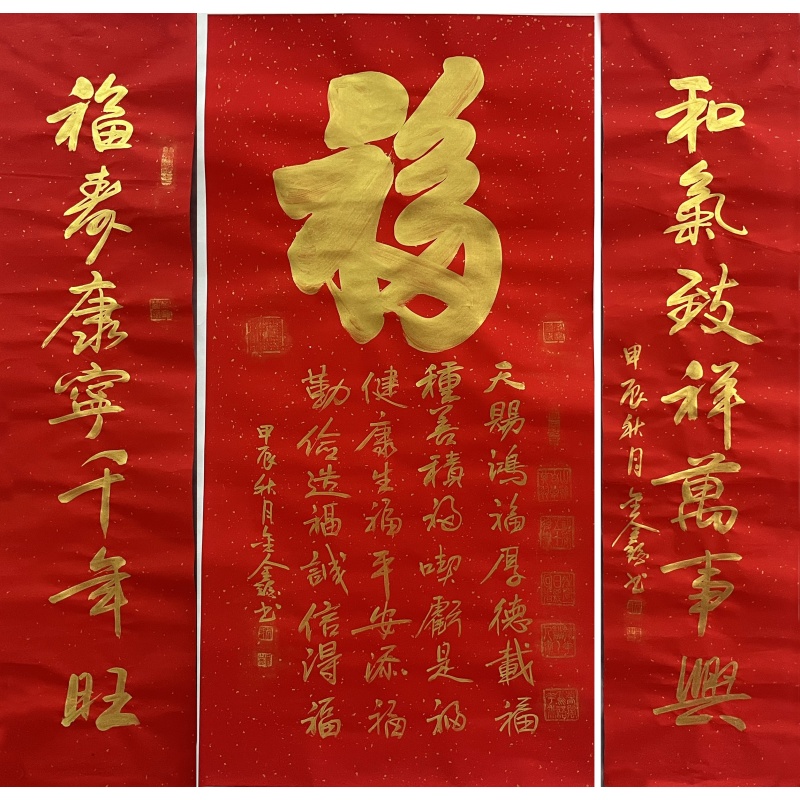 和氣致祥萬事興
甲辰秋月鑫书
福
天賜鴻福厚德載福
種善積福喫虧是福
健康生福平安添福
勤儉造福誠信得福
甲辰秋月鑫书
福壽康寧千年旺